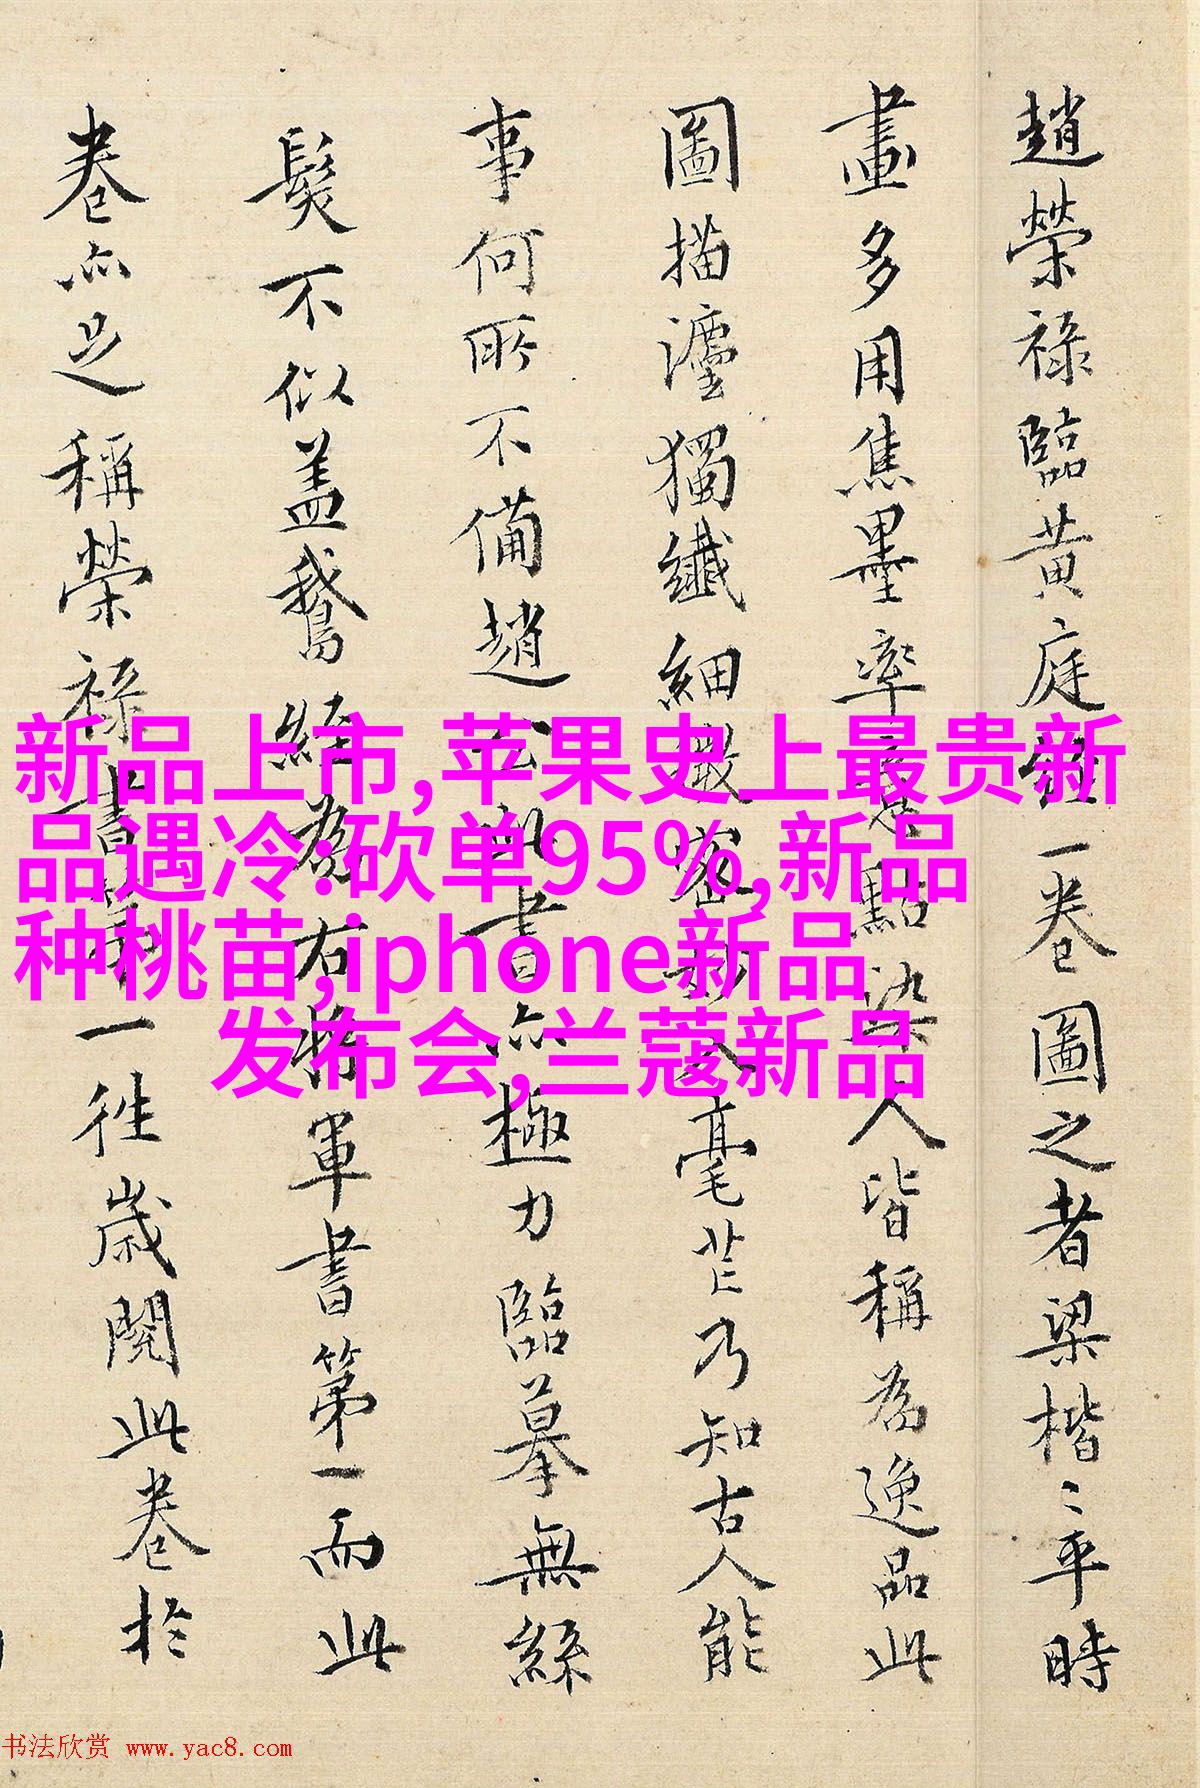 趙榮祿臨黃庭經一卷圖之者梁楷〻平時
畫多用焦墨率意點染人皆稱為逸品此
圖描瀍獨纖細嚴密於人毫芒乃知古人能
事何所不備趙公此書亦極力臨摹無絲
髮不似盖鵞經為右將軍書第一而此
卷亦足稱榮祿書第一往歲閱此卷於
新品上市,苹果史上最贵新
品遇冷:砍单95%,新品
种桃苗,iphone新品
发布会,兰蔻新品
书法欣赏 www.yac8.com